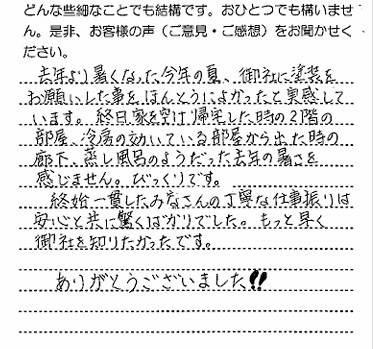 どんな些細なことでも結構です。おひとつでも構いませ
ん。是非、お客様の声（ご意見・ご感想）をお聞かせく
ださい。
去年より暑くなった今年の夏、御社に塗装を
お願いした事を ほんとうによかったと実感して
います。終日家を空け帰宅した時の2階の
部屋、冷房の効いている部屋から出た時の
廊下、蒸し風呂のようだった去年の暑さを
感じません。びっくりです。
終始一貫したみなさんの丁寧な仕事振りは
安心と共に驚くばかりでした。もっと早く
御社を知りたかったです。
ありがとうございました!!